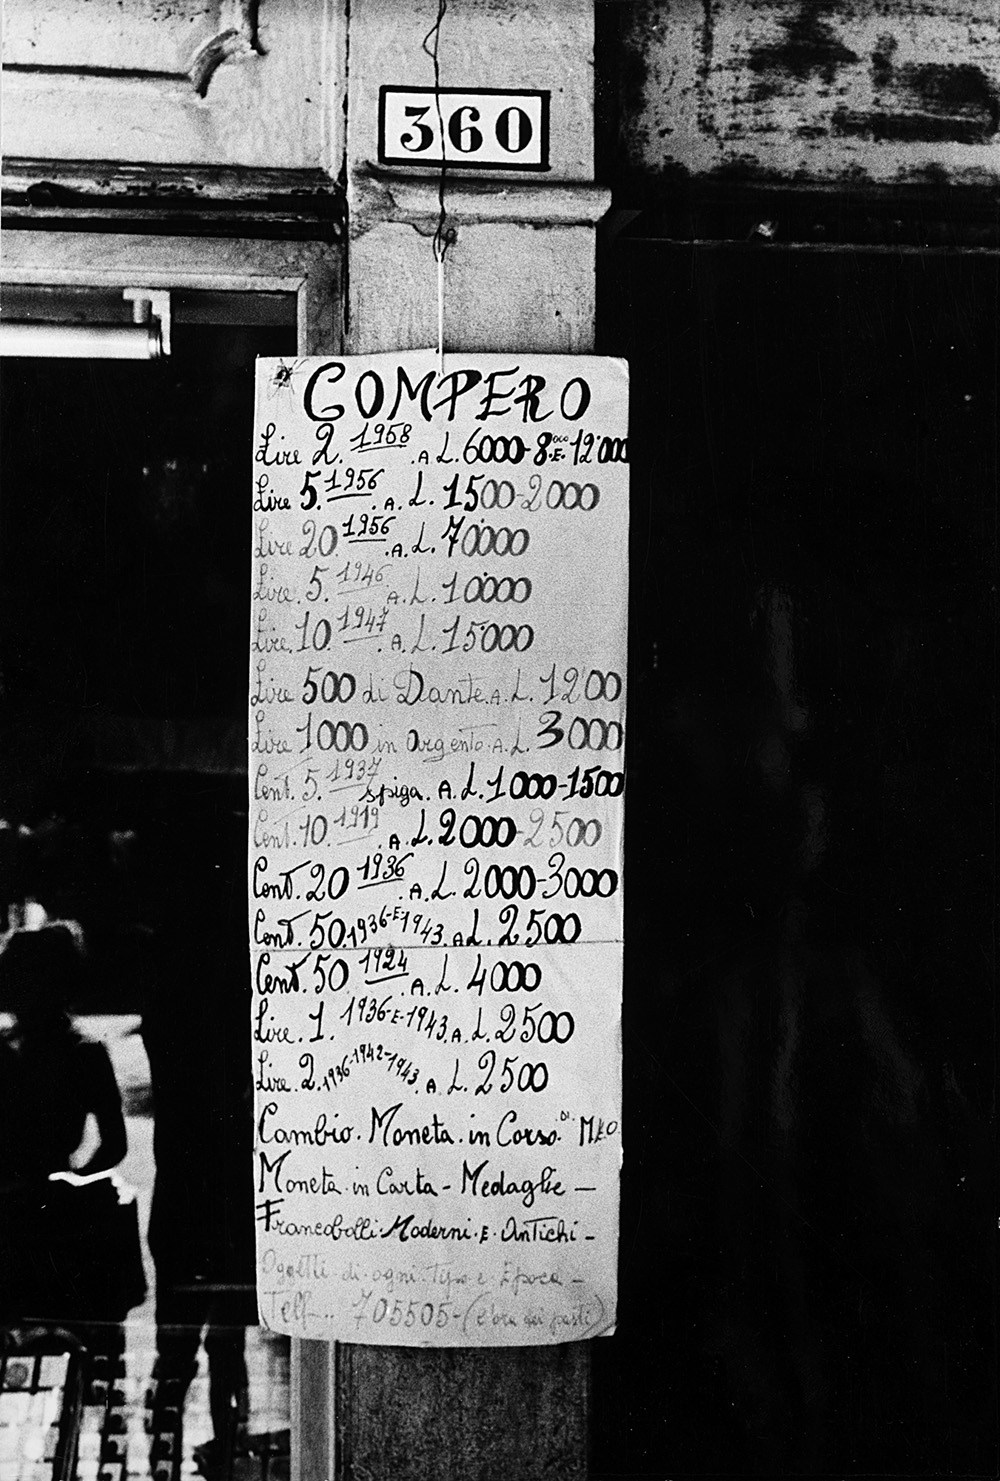 360
COMPERO
Lire 2. 1958 .A L. 6000-8000 E 12'000
Lire 5. 1956 .A. L. 1500-2000
Lire 20. 1956 .A. L. 70'000
Lire. 5. 1946. A. L. 10'000
Lire. 10. 1947 .A. L. 15'000
Lire 500 di Dante. A. L. 12'00
Lire 1000 in argento. A. L. 3000
Cent. 5. 1937 spiga. A. L. 1000-1500
Cent. 10. 1919 .A. L. 2000-2500
Cent. 20 1936 .A. L. 2000-3000
Cent. 50. 1936-E-1943. A L. 2500
Cent. 50 1924 .A. L. 4000
Lire. 1. 1936-E-1943. A. L. 2500
Lire. 2. 1936-1942-1943. A. L. 2500
Cambio. Moneta. in Corso. DI
Moneta. in Carta - Medaglie -
Francobolli. Moderni. E. Antichi -
Ogetti. di. ogni. Tipo e Epoca -
Telf... 705505-(l'ora dei pasti)